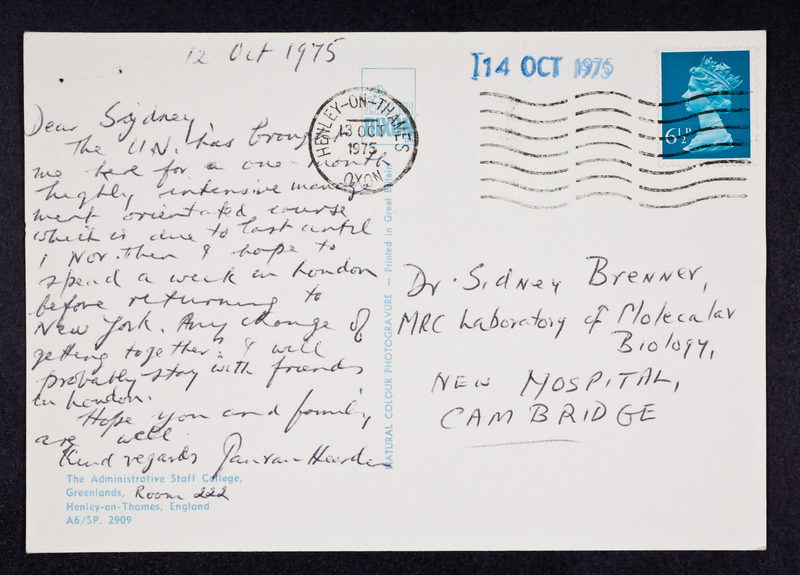 12 Oct 1975
Dear Sydney,
The U.N. has brought
me here for a one-month
highly intensive manage
ment orientated course
which is due to last until
1 Nov. Then I hope to
spend a week in London
before returning to
New York. Any change of
getting together? I will
probably stay with friends
in London.
Hope you and family
are well.
Kind regards Jan van Heerden
The Administrative Staff College,
Greenlands, Room 222
Henley-on-Thames, England
A6/SP. 2909
NATURAL COLOUR PHOTOGRAVURE — Printed in Great Britain
HENLEY-ON-THAMES
13 OCT
1975
OXON
14 OCT 1975
6½P
Dr. Sidney Brenner,
MRC Laboratory of Molecular
Biology,
NEW HOSPITAL,
CAMBRIDGE